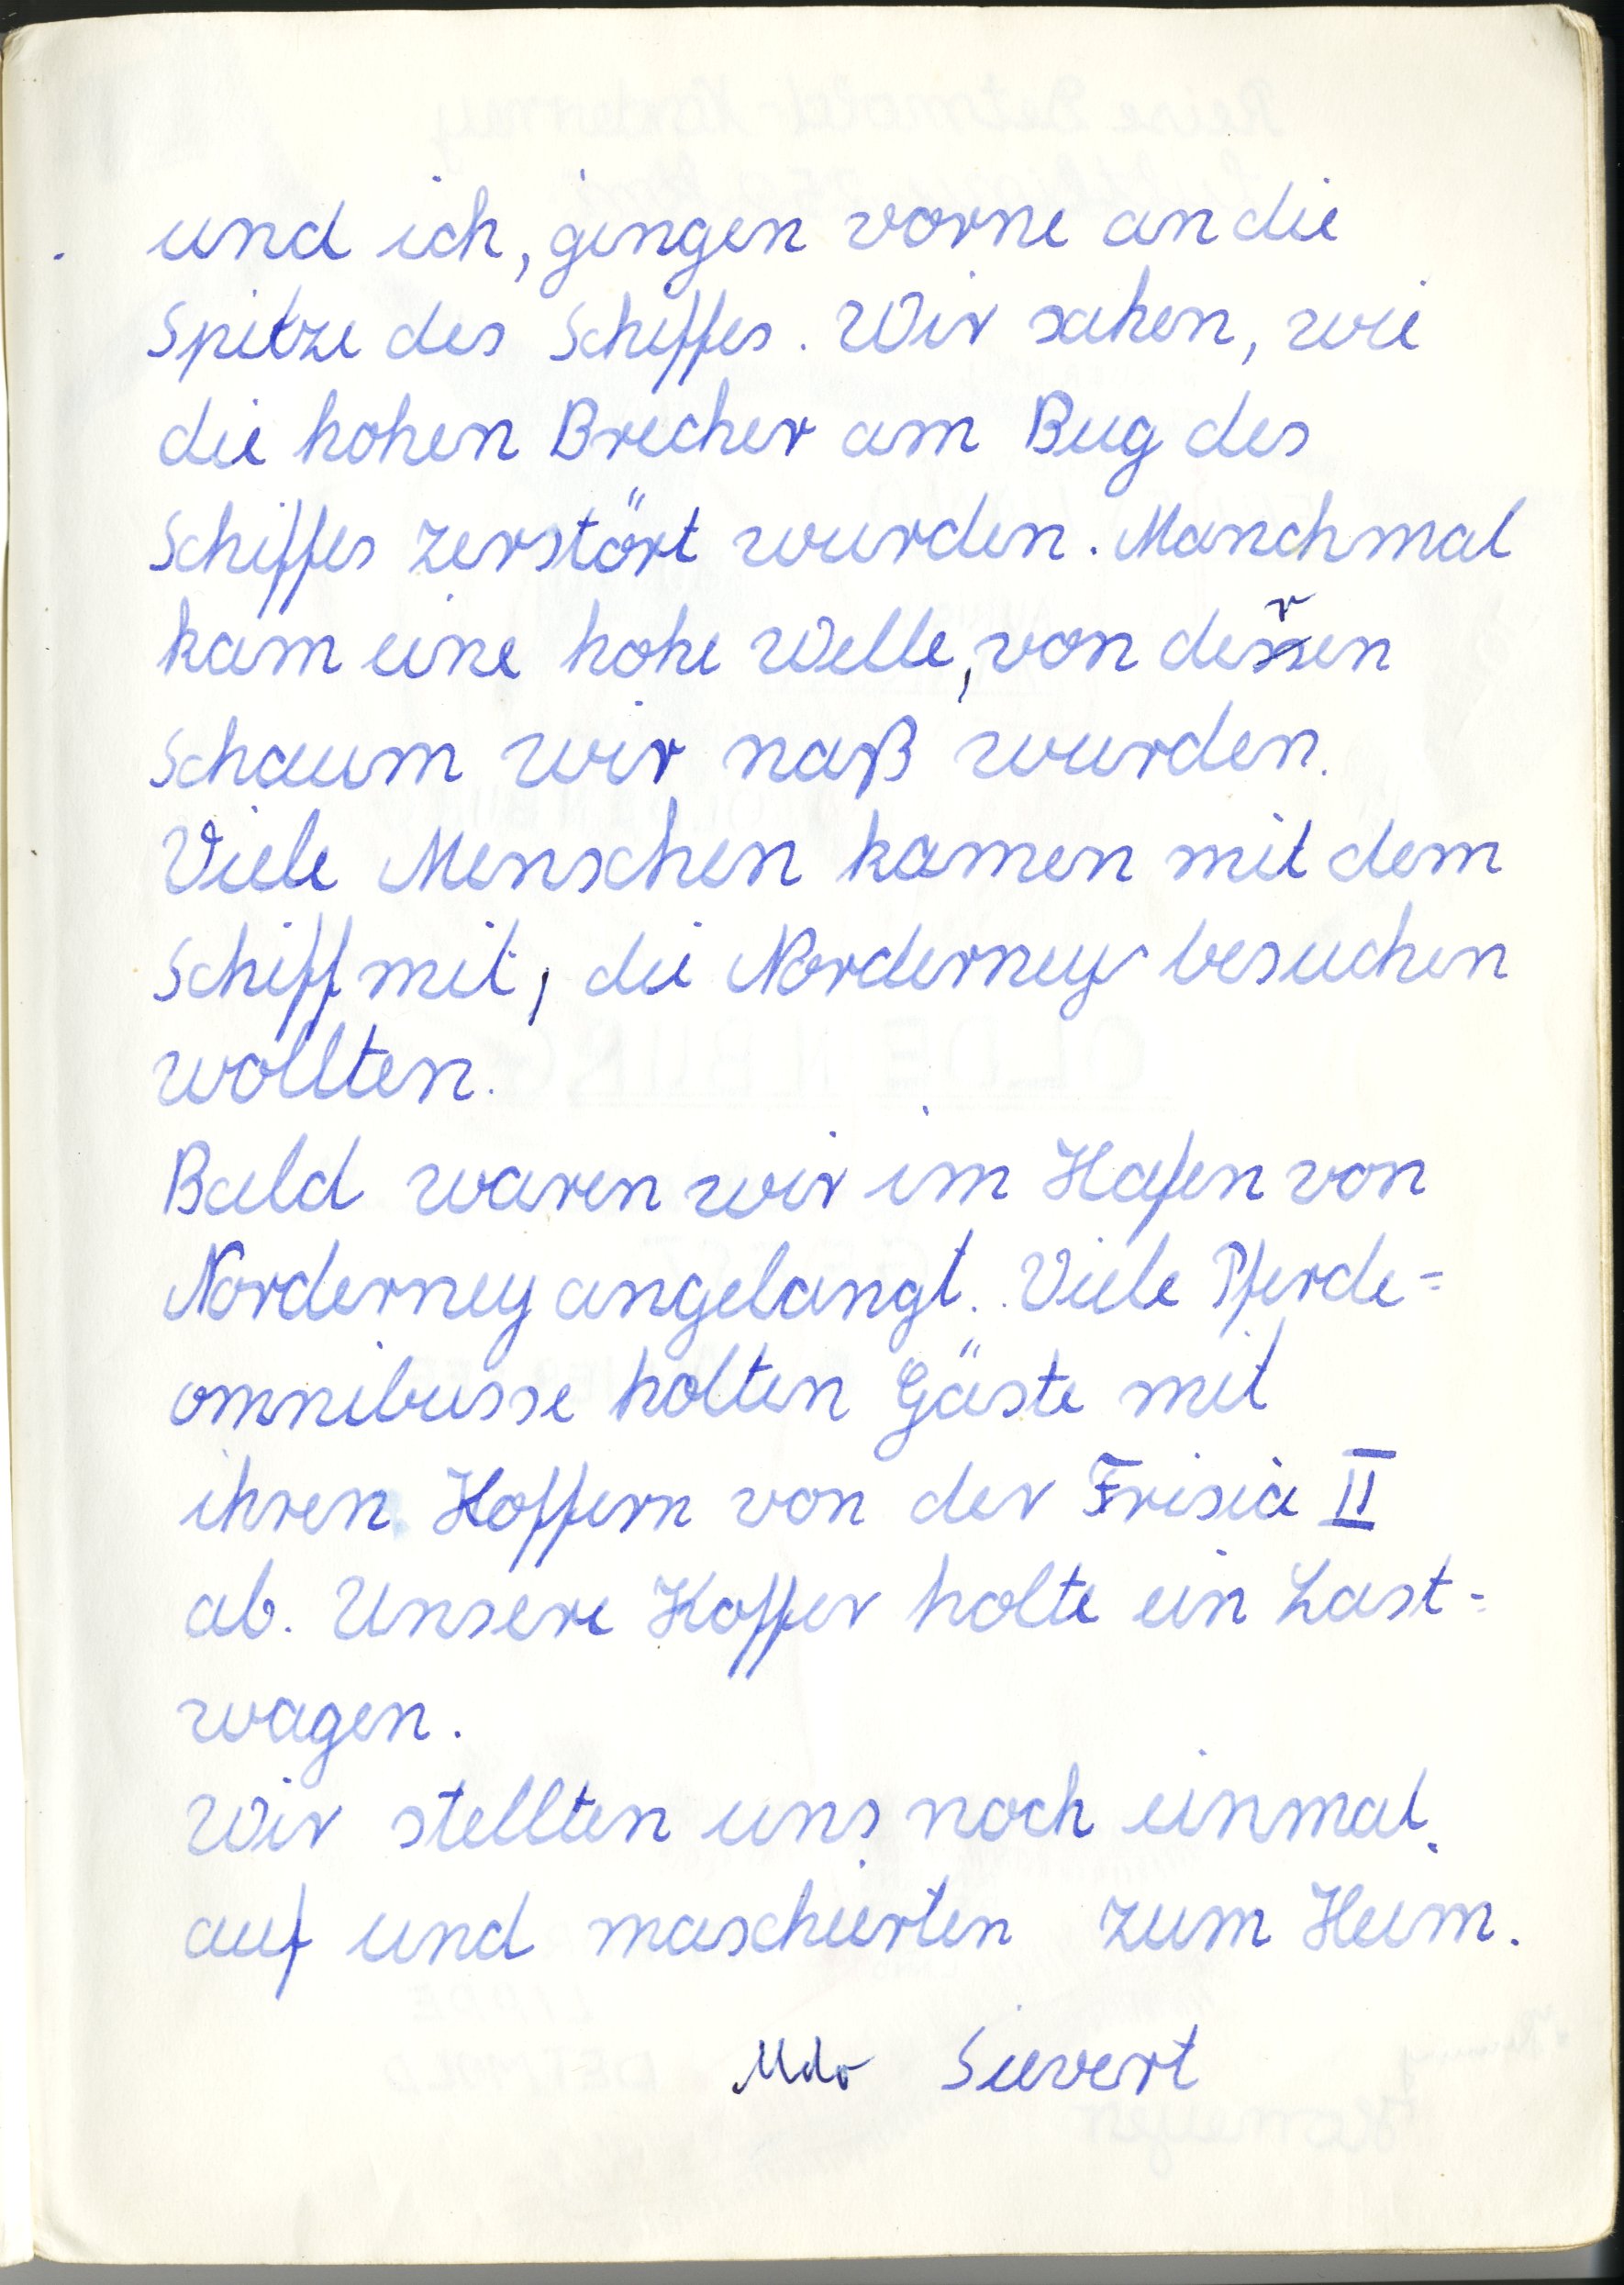 und ich, gingen vorne an die
Spitze des Schiffes. Wir sahen, wie
die hohen Brecher am Bug des
Schiffes zerstört wurden. Manchmal
kam eine hohe Welle, von deren
Schaum wir naß wurden.
Viele Menschen kamen mit dem
Schiff mit, die Norderney besuchen
wollten.
Bald waren wir im Hafen von
Norderney angelangt. Viele Pferde=
omnibusse holten Gäste mit
ihren Koffern von der Frisia II
ab. Unsere Koffer holte ein Last=
wagen.
Wir stellten uns noch einmal
auf und maschierten zum Heim.
Udo Sievert